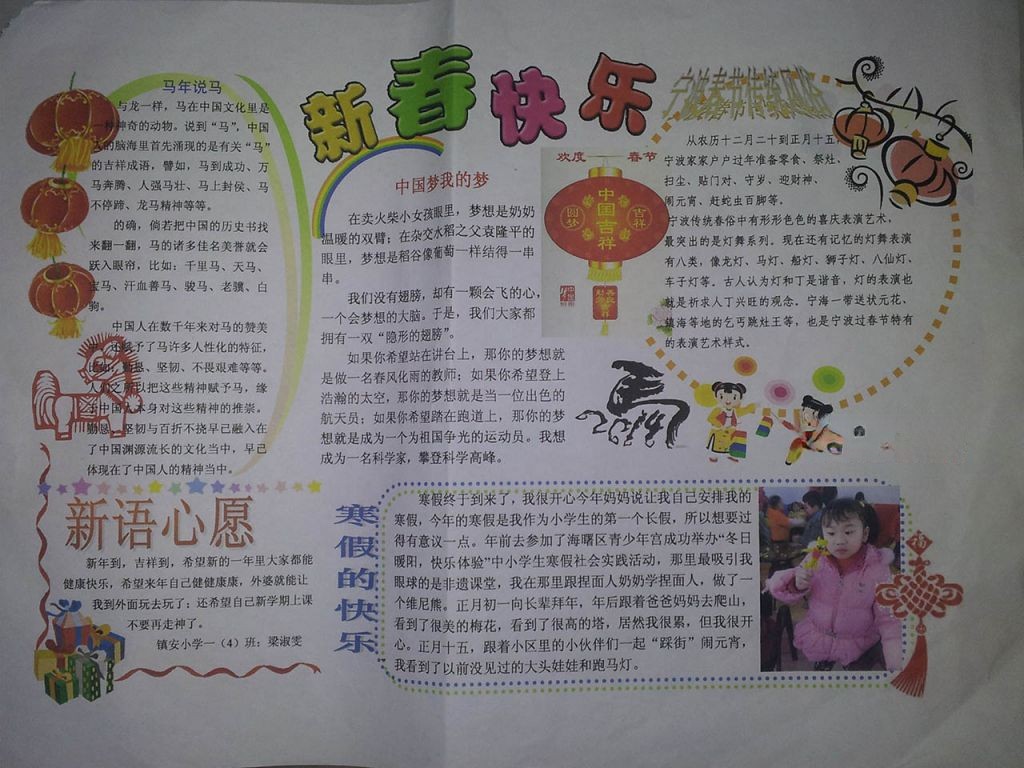 新春快乐
马年说马
与龙一样，马在中国文化里是
一种神奇的动物。说到“马”，中国
人的脑海里首先涌现的是有关“马”
的吉祥成语，譬如，马到成功、万
马奔腾、人强马壮、马上封侯、马
不停蹄、龙马精神等等。
的确，倘若把中国的历史书找
来翻一翻，马的诸多佳名美誉就会
跃入眼帘，比如：千里马、天马、
宝马、汗血善马、骏马、老骥、白
驹。
中国人在数千年来对马的赞美
还赋予了马许多人性化的特征，
比如，勤恳、坚韧、不畏艰难等等。
人们之所以把这些精神赋予马，缘
于中国人本身对这些精神的推崇。
勤恳、坚韧与百折不挠早已融入在
了中国渊源流长的文化当中，早已
体现在了中国人的精神当中。
新语心愿
新年到，吉祥到，希望新的一年里大家都能
健康快乐，希望来年自己健健康康，外婆就能让
我到外面玩去玩了；还希望自己新学期上课
不要再走神了。
镇安小学一（4）班：梁淑雯
中国梦我的梦
在卖火柴小女孩眼里，梦想是奶奶
温暖的双臂；在杂交水稻之父袁隆平的
眼里，梦想是稻谷像葡萄一样结得一串
串。
我们没有翅膀，却有一颗会飞的心，
一个会梦想的大脑。于是，我们大家都
拥有一双“隐形的翅膀”。
如果你希望站在讲台上，那你的梦想就
是做一名春风化雨的教师；如果你希望登上
浩瀚的太空，那你的梦想就是当一位出色的
航天员；如果你希望踏在跑道上，那你的梦
想就是成为一个为祖国争光的运动员。我想
成为一名科学家，攀登科学高峰。
欢度 春节
中国吉祥
圆梦
吉祥
宁波春节传统风俗
从农历十二月二十到正月十五，
宁波家家户户过年准备零食、祭灶、
扫尘、贴门对、守岁、迎财神、
闹元宵、赶蛇虫百脚等。
宁波传统春俗中有形形色色的喜庆表演艺术，
最突出的是灯舞系列。现在还有记忆的灯舞表演
有八类，像龙灯、马灯、船灯、狮子灯、八仙灯、
车子灯等。古人认为灯和丁是谐音，灯的表演也
就是祈求人丁兴旺的观念。宁海一带送状元花、
镇海等地的乞丐跳灶王等，也是宁波过春节特有
的表演艺术样式。
寒假的快乐
寒假终于到来了，我很开心今年妈妈说让我自己安排我的
寒假，今年的寒假是我作为小学生的第一个长假，所以想要过
得有意议一点。年前去参加了海曙区青少年宫成功举办“冬日
暖阳，快乐体验”中小学生寒假社会实践活动，那里最吸引我
眼球的是非遗课堂，我在那里跟捏面人奶奶学捏面人，做了一
个维尼熊。正月初一向长辈拜年，年后跟着爸爸妈妈去爬山，
看到了很美的梅花，看到了很高的塔，居然我很累，但我很开
心。正月十五，跟着小区里的小伙伴们一起“踩街”闹元宵，
我看到了以前没见过的大头娃娃和跑马灯。
福